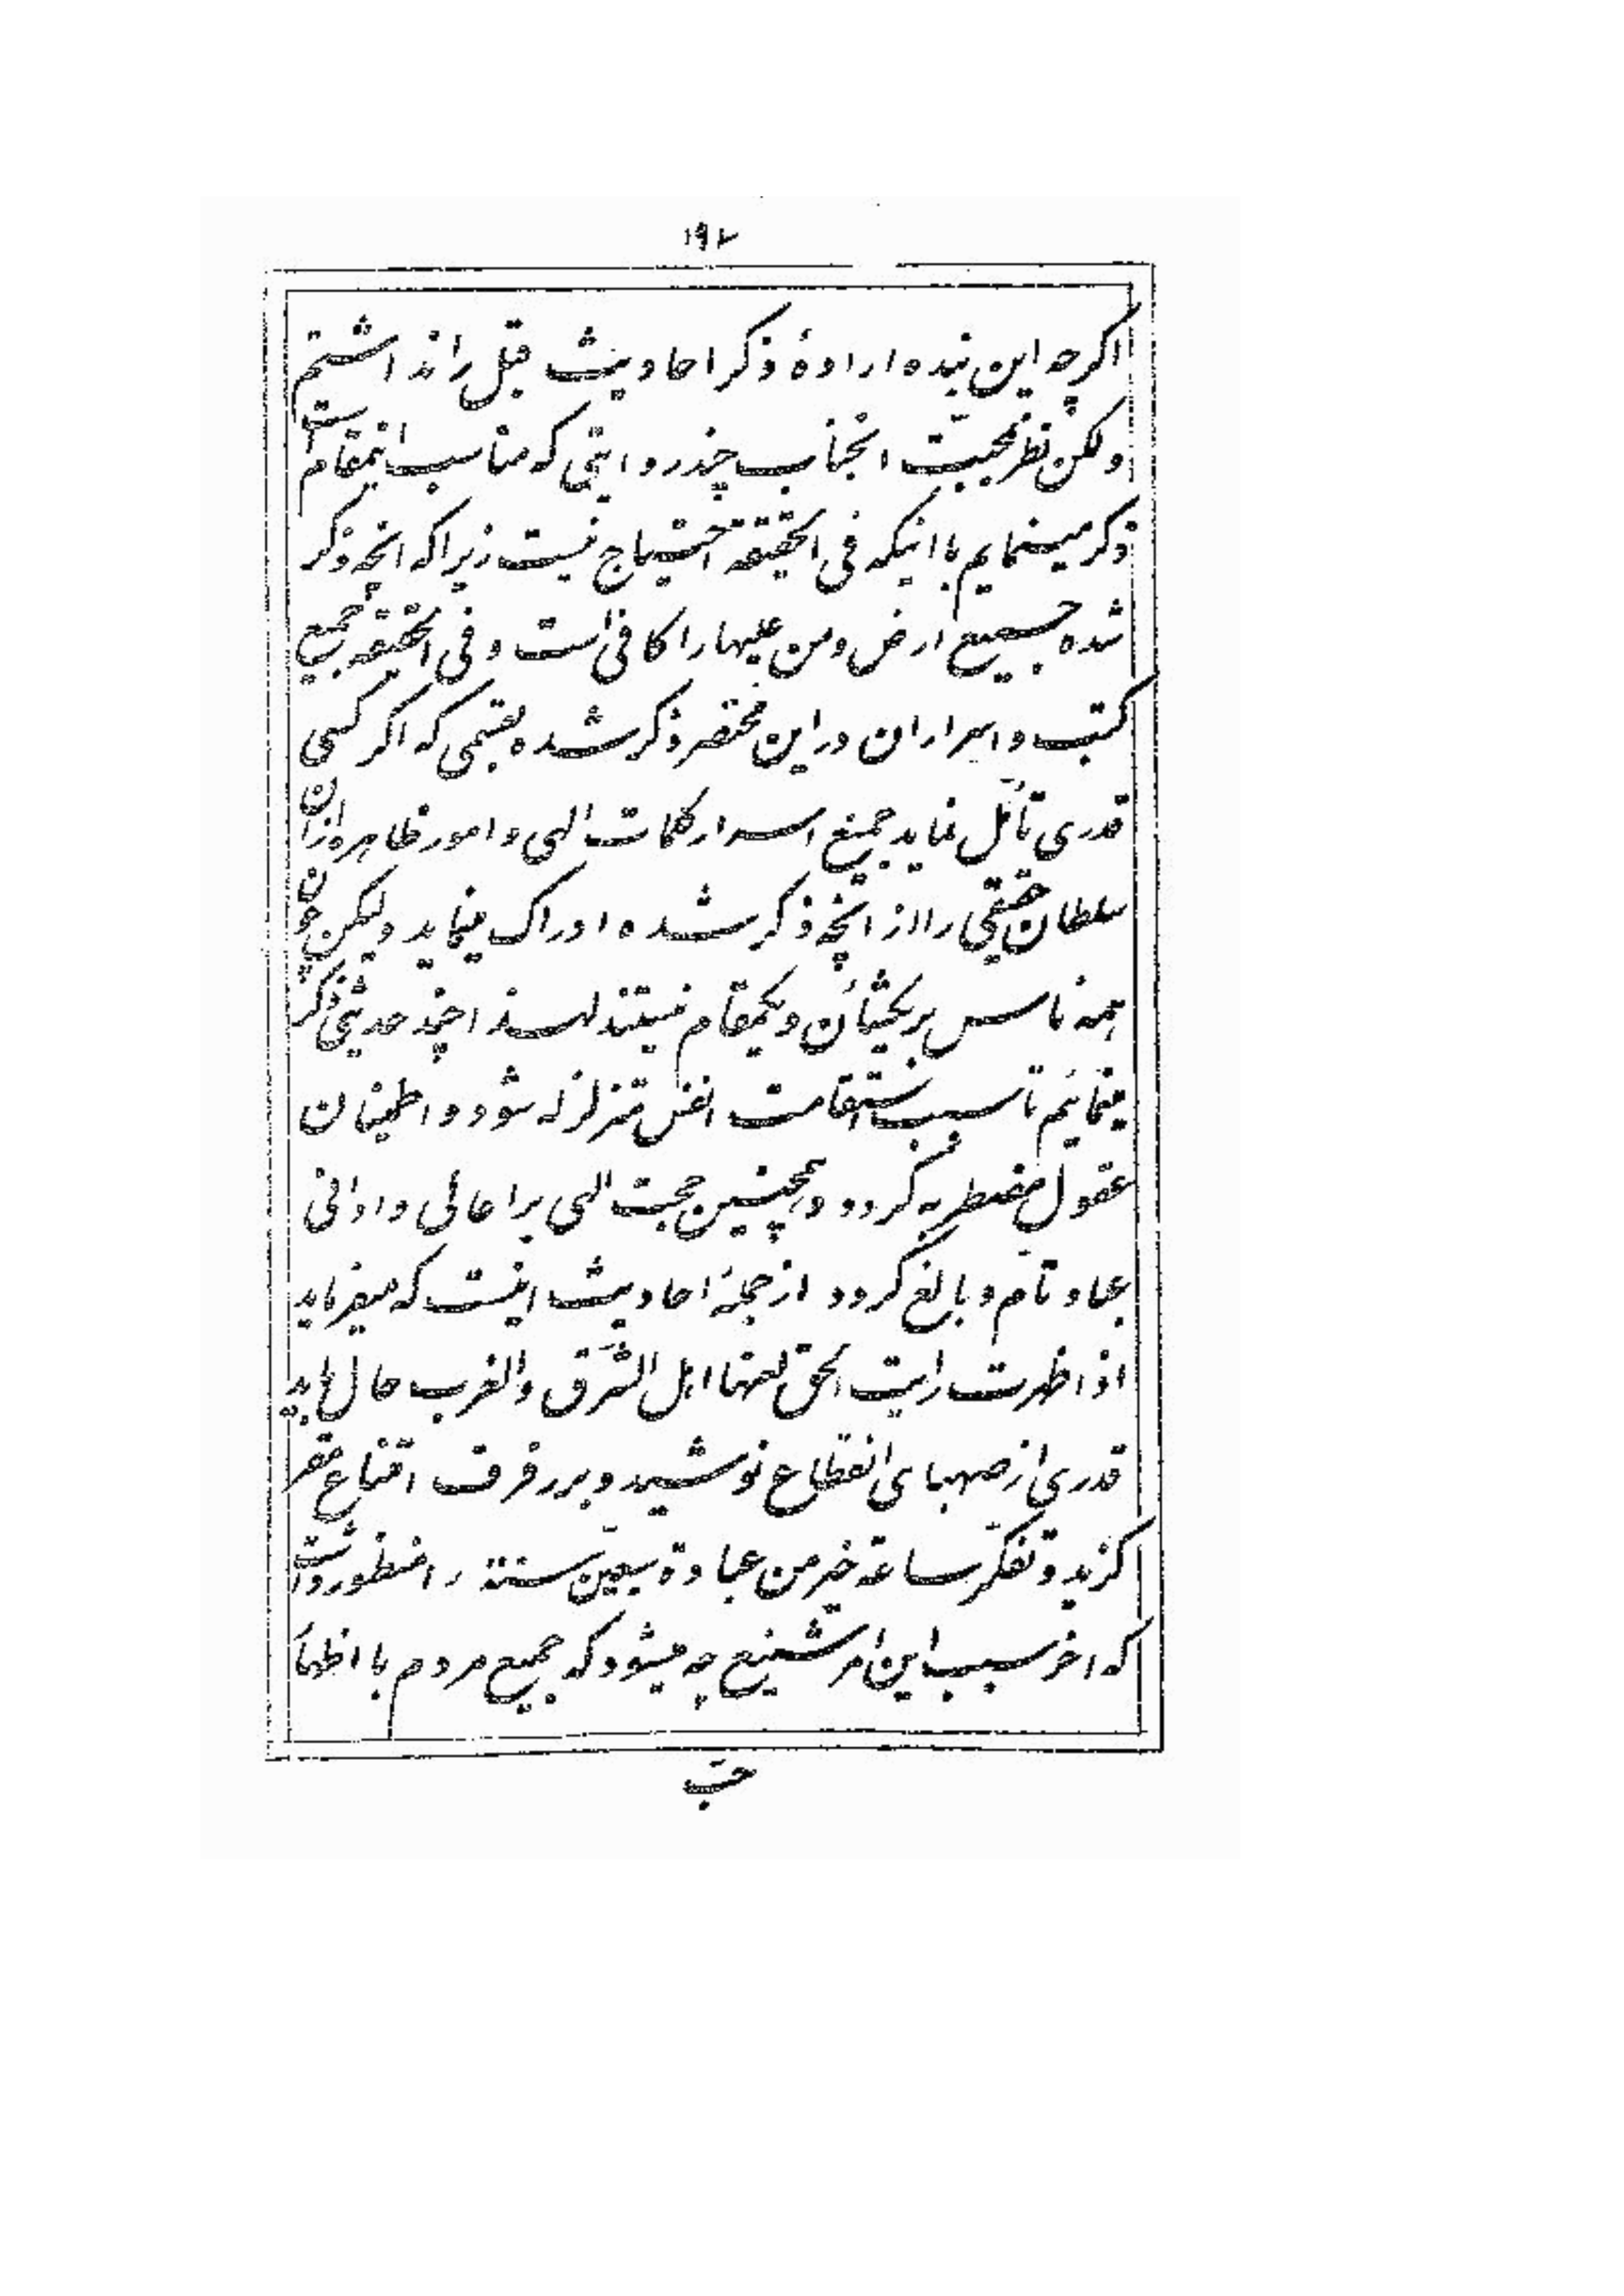 ۱۹۷
اکرچه این بنده ارادهٔ ذکر احادیث قبل را نداشتم
ولکن نظر بمحبّت انجناب چند روایتی که مناسب اینمقام است
ذکر مینمایم با اینکه فی الحقیقه احتیاج نیست زیرا که انچه ذکر
شده جمیع ارض و من علیها را کافی است و فی الحقیقه جمیع
کتب و اسرار ان در این مختصر ذکر شده بقسمی که اکر کسی
قدری تأمّل نماید جمیع اسرار کلمات الهی و امور ظاهره از ان
سلطان حقیقی را از انچه ذکر شده ادراک مینماید ولیکن چون
همه ناس بر یکشأن و یکمقام نیستند لهذا چند حدیثی ذکر
مینمائیم تا سبب استقامت انفس متزلزله شود و اطمینان
عقول مضطربه کردد و همچنین حجت الهی بر اعالی و ادانی
عباد تامّ و بالغ کردد از جملهٔ احادیث اینست که میفرماید
اذا ظهرت رایت الحق لعنها اهل الشّرق والغرب حال باید
قدری از صهبای انقطاع نوشید و بر رفرف امتناع مقر
کزید و تفکّر ساعة خیر من عبادة سبعین سنة را منظور داشت
که اخر سبب این امر شنیع چه میشود که جمیع مردم با اظهار
حبّ